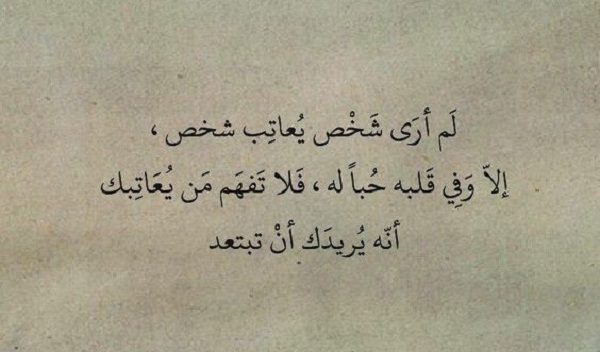 لَم أرَى شَخْص يُعاتِب شخص ،
إلاّ وَفِي قَلبه حُباً له ، فَلا تَفهَم مَن يُعَاتِبك
أنّه يُريدَك أنْ تبتعد